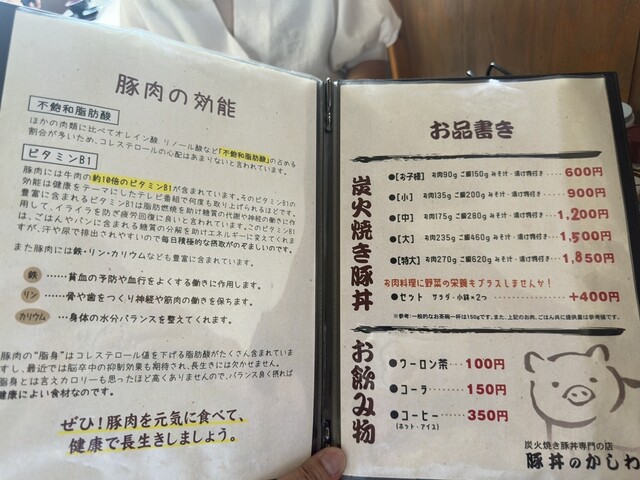 豚肉の効能
不飽和脂肪酸
ほかの肉類に比べてオレイン酸 リノール酸など「不飽和脂肪酸」の占める
割合が多いため、コレステロールの心配はあまりないと言われています。
ビタミンB1
豚肉には牛肉の約10倍のビタミンB1が含まれています。そのビタミンB1の
効能は健康をテーマにしたテレビ番組で何度も取り上げられるほどです。
豊富に含まれるビタミンB1は脂肪燃焼を助け糖質の代謝や神経の働きに作
用して、イライラを防ぎ疲労回復に良いと言われています。このビタミンB1
は、ごはんやパンに含まれる糖質の分解を助けエネルギーに変えてくれま
すが、汗や尿で排出されやすいので毎日積極的な摂取がのぞましいのです。
また豚肉には鉄・リン・カリウムなども豊富に含まれています。
鉄……貧血の予防や血行をよくする働きに作用します。
リン……骨や歯をつくり神経や筋肉の働きを保ちます。
カリウム…身体の水分バランスを整えてくれます。
豚肉の“脂身”はコレステロール値を下げる脂肪酸がたくさん含まれていま
すし、最近では脳卒中の抑制効果も期待され、長生きには欠かせません。
脂身とは言えカロリーも思ったほど高くありませんので、バランス良く摂れば
健康によい食材なのです。
ぜひ!豚肉を元気に食べて、
健康で長生きしましょう。
お品書き
炭火焼き豚丼
●[お子様] お肉90g ご飯150g みそ汁・漬け物付き… 600円
●[小] お肉135g ご飯200g みそ汁・漬け物付き… 900円
●[中] お肉175g ご飯280g みそ汁・漬け物付き… 1,200円
●[大] お肉235g ご飯460g みそ汁・漬け物付き… 1,500円
●[特大] お肉270g ご飯620g みそ汁・漬け物付き… 1,850円
お肉料理に野菜の栄養もプラスしませんか!
●セット サラダ・小鉢×2つ………+400円
※参考:一般的なお茶碗一杯は150gです。また、上記のお肉、ごはん共に提供量は参考値です。
お飲み物
●ウーロン茶…100円
●コーラ……150円
●コーヒー……350円
(ホット・アイス)
炭火焼き豚丼専門の店
豚丼のかしわ